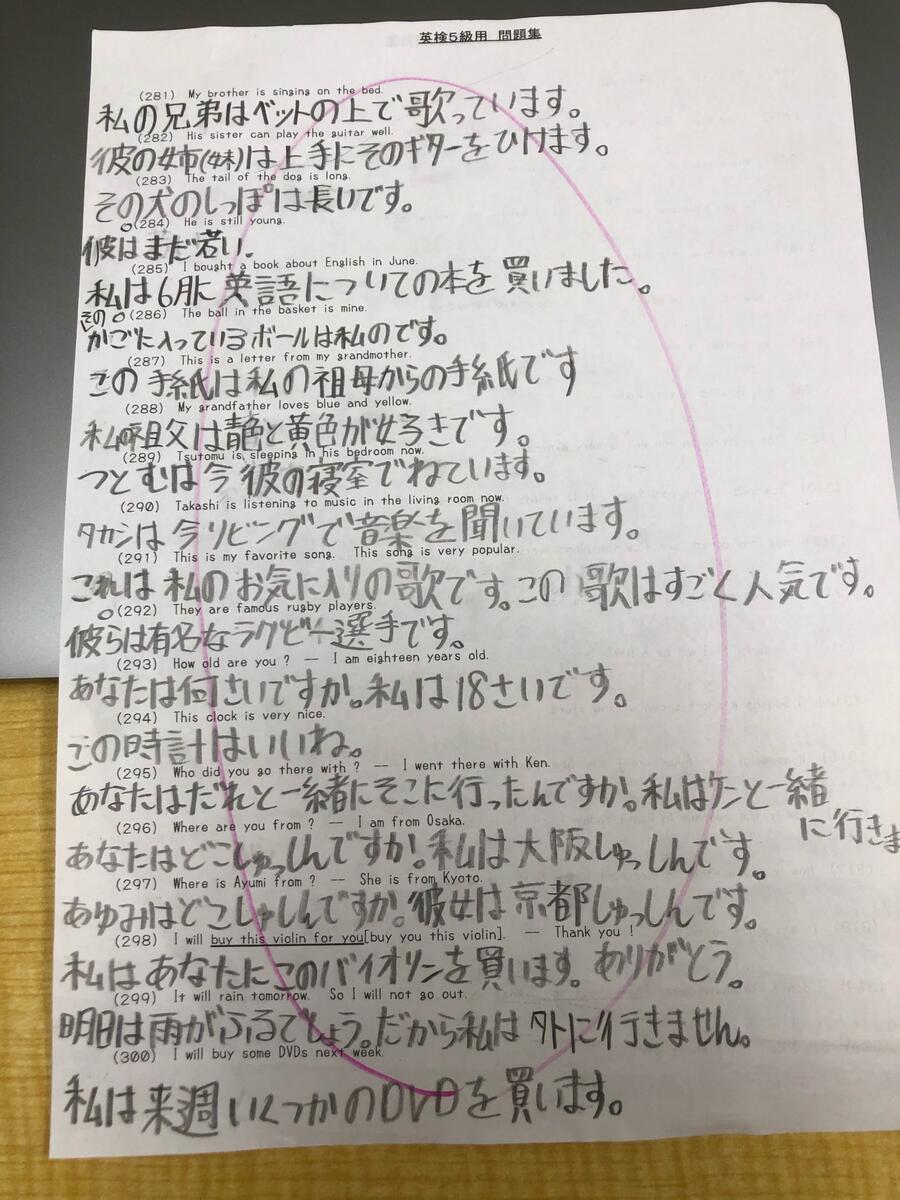 英検5級用 問題集
(281) My brother is singing on the bed.
私の兄弟はベットの上で歌っています。
(282) His sister can play the guitar well.
彼の姉(妹)は上手にそのギターをひけます。
(283) The tail of the dog is long.
その犬のしっぽは長いです。
(284) He is still young.
彼はまだ若い.
(285) I bought a book about English in June.
私は6月に英語についての本を買いました。
(286) The ball in the basket is mine.
その
かごに入っているボールは私のです。
(287) This is a letter from my grandmother.
この手紙は私の祖母からの手紙です
(288) My grandfather loves blue and yellow.
私の祖父は青色と黄色が好きです。
(289) Tsutomu is sleeping in his bedroom now.
つとむは今彼の寝室でねています。
(290) Takashi is listening to music in the living room now.
タカシは今リビングで音楽を聞いています。
(291) This is my favorite song. This song is very popular.
これは私のお気に入りの歌です。この歌はすごく人気です。
(292) They are famous rugby players.
彼らは有名なラグビー選手です。
(293) How old are you ? -- I am eighteen years old.
あなたは何さいですか。私は18さいです。
(294) This clock is very nice.
この時計はいいね。
(295) Who did you go there with ? -- I went there with Ken.
あなたはだれと一緒にそこに行ったんですか。私はケンと一緒
に行きま
(296) Where are you from ? -- I am from Osaka.
あなたはどこしゅっしんですか。私は大阪しゅっしんです。
(297) Where is Ayumi from ? -- She is from Kyoto.
あゆみはどこしゅしんですか。彼女は京都しゅっしんです。
(298) I will buy this violin for you[buy you this violin]. -- Thank you !
私はあなたにこのバイオリンを買います。ありがとう。
(299) It will rain tomorrow. So I will not go out.
明日は雨がふるでしょう。だから私は外に行きません。
(300) I will buy some DVDs next week.
私は来週いくつかのDVDを買います。